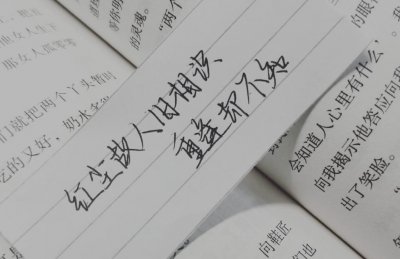 红尘故人旧相识
重逢却不知
那女人孤零零
们就把两个丫头
吃的又好，奶水
的灵魂。
“两个
会知道人心里有什么，
向我揭示他答应向我
出了笑脸。
向鞋匠
们也